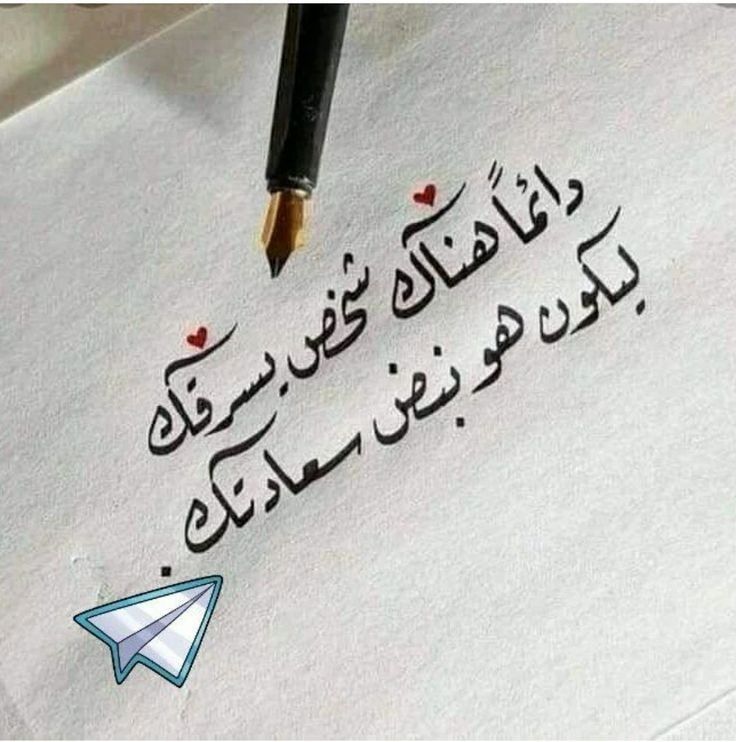 دائماً هناك شخص يسرقك
ليكون هو بنبض سعادتك.